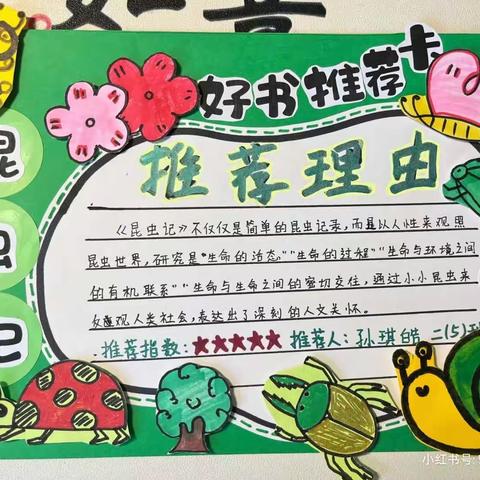 好书推荐卡
昆虫记
推荐理由
《昆虫记》不仅仅是简单的昆虫记录,而是以人性来观照
昆虫世界,研究是“生命的活态”“生命的过程”“生命与环境之间
的有机联系”“生命与生命之间的密切交往,通过小小昆虫来
反观人类社会,表达出了深刻的人文关怀。
推荐指数:★★★★★ 推荐人:孙琪皓 二(5)班
小红书号:9